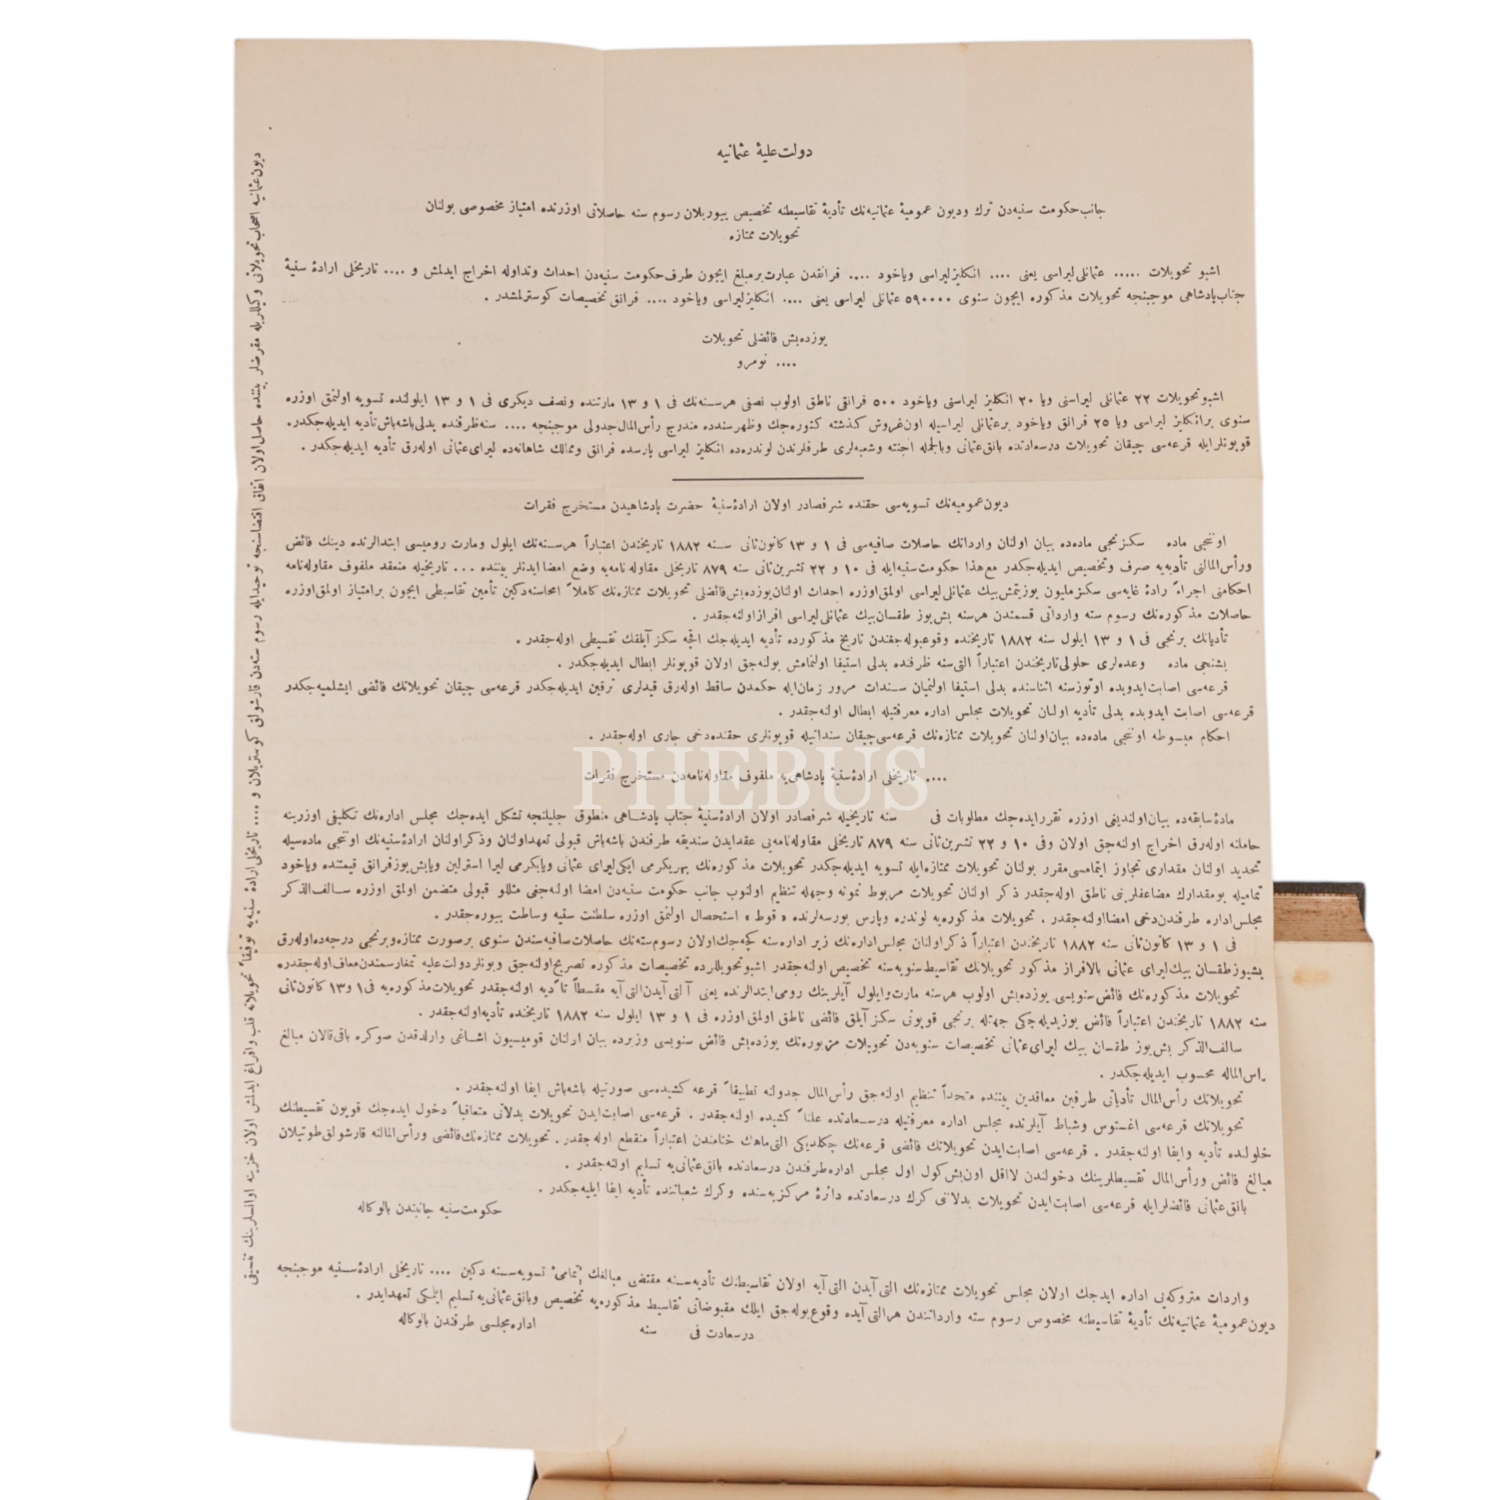 دولت علیۀ عثمانیه
جانب حکومت سنیه‌دن ترك ودیون عمومیۀ عثمانیه‌نك تأدیۀ تقاسیطنه تخصیص بیوریلان رسوم سته حاصلاتی اوزرنده امتیاز مخصوصی بولنان
تحویلات ممتازه
اشبو تحویلات ..... عثمانلی لیراسی یعنی .... انكلیز لیراسی ویاخود .... فرانقدن عبارت برمبلغ ایچون طرف حکومت سنیه‌دن احداث وتداوله اخراج ایدلمش و .... تاریخلی ارادۀ سنیۀ
جناب پادشاهی موجبنجه تحویلات مذکوره ایچون سنوی ٥٩٠٠٠٠ عثمانلی لیراسی یعنی .... انكلیز لیراسی ویاخود .... فرانق تخصیصات کوسترلمشدر .
یوزده‌بش فائضلی تحویلات
.... نومرو
اشبو تحویلات ٢٢ عثمانلی لیراسی ویا ٢٠ انكلیز لیراسنی ویاخود ٥٠٠ فرانقی ناطق اولوب نصفی هرسنه‌نك فی ١ و ١٣ مارتنده ونصف دیکری فی ١ و ١٣ ایلولنده تسویه اولنمق اوزره
سنوی برانكلیز لیراسی ویا ٢٥ فرانق ویاخود برعثمانلی لیراسیله اون غروش کذشته کتوره‌جك وظهرسنده مندرج رأس‌المال جدولی موجبنجه .... سنه ظرفنده بدلی باشه‌باش تأدیه ایدیله‌جکدر.
قوپونلرایله قرعه‌سی چیقان تحویلات درسعادتده بانق عثمانی وبالجمله اجنته وشعبه‌لری طرفلرندن لوندره‌ده انكلیز لیراسی پارسده فرانق وممالك شاهانه‌ده لیرای عثمانی اوله‌رق تأدیه ایدیله‌جکدر .
دیون عمومیه‌نك تسویه‌سی حقنده شرفصادر اولان ارادۀ سنیۀ حضرت پادشاهیدن مستخرج فقرات
اوننجی ماده سکزنجی ماده‌ده بیان اولنان وارداتك حاصلات صافیه‌سی فی ١ و ١٣ کانون‌ثانی سنه ١٨٨٢ تاریخندن اعتباراً هرسنه‌نك ایلول ومارت رومیسی ابتدالرنده دینك فائض
ورأس‌المالنی تأدیه‌یه صرف وتخصیص ایدیله‌جکدر مع‌هذا حکومت سنیه‌ایله فی ١٠ و ٢٢ تشرین‌ثانی سنه ٨٧٩ تاریخلی مقاوله‌نامه‌یه وضع امضا ایدنلر بیننده ... تاریخیله منعقد ملفوف مقاوله‌نامه
احکامنی اجراءً رادۀ غایه‌سی سکزملیون یوزیتمش بیك عثمانلی لیراسی اولمق اوزره احداث اولنان یوزده‌بش فائضلی تحویلات ممتازه‌نك کاملاً امحاسنه‌دکین تأمین تقاسیطی ایچون برامتیاز اولمق اوزره
حاصلات مذکوره‌نك رسوم سته وارداتی قسمندن هرسنه بش‌یوز طقسان بیك عثمانلی لیراسی افراز اولنه‌جقدر .
تأدیاتك برنجی فی ١ و ١٣ ایلول سنه ١٨٨٢ تاریخنده وقوعبوله‌جغندن تاریخ مذکورده تأدیه ایدیله‌جك اقچه سکز آیلقك تقسیطی اوله‌جقدر .
بشنجی ماده وعده‌لری حلولی تاریخندن اعتباراً التی سنه ظرفنده بدلی استیفا اولنمامش بولنه‌جق اولان قوپونلر ابطال ایدیله‌جکدر .
قرعه‌سی اصابت ایدوبده اوتوز سنه اثناسنده بدلی استیفا اولنمیان سندات مرور زمان‌ایله حکمدن ساقط اوله‌رق قیدلری ترقین ایدیله‌جکدر قرعه‌سی چیقان تحویلاتك فائضی ایشلمیه‌جکدر
قرعه‌سی اصابت ایدوبده بدلی تأدیه اولنان تحویلات مجلس اداره معرفتیله ابطال اولنه‌جقدر .
احکام مبسوطه اوننجی ماده‌ده بیان اولنان تحویلات ممتازه‌نك قرعه‌سی چیقان سنداتیله قوپونلری حقنده‌دخی جاری اوله‌جقدر .
.... تاریخلی ارادۀ سنیۀ پادشاهی‌یه ملفوف مقاوله‌نامه‌دن مستخرج فقرات
مادۀ سابقه‌ده بیان اولندیغی اوزره تقرر ایده‌جك مطلوبات فی سنه تاریخیله شرفصادر اولان ارادۀ سنیۀ جناب پادشاهی منطوق جلیلنجه تشکل ایده‌جك مجلس اداره‌نك تکلیفی اوزرینه
حاملنه اوله‌رق اخراج اولنه‌جق اولان وفی ١٠ و ٢٢ تشرین‌ثانی سنه ٨٧٩ تاریخلی مقاوله‌نامه‌یی عقد ایدن سندیقه طرفندن باشه‌باش قبولی تعهد اولنان وذکر اولنان ارادۀ سنیه‌نك اوننجی ماده‌سیله
تحدید اولنان مقداری تجاوز ایتمامسی مقرر بولنان تحویلات ممتازه‌ایله تسویه ایدیله‌جکدر تحویلات مذکوره‌نك بهریکرمی ایکی لیرای عثمانی ویابکرمی لیرا استرلین ویابش‌یوز فرانق قیمتنده ویاخود
تمامیله بومقدارك مضاعفلرینی ناطق اوله‌جقدر ذکر اولنان تحویلات مربوط نمونه وجهله تنظیم اولنوب جانب حکومت سنیه‌دن امضا اولنه‌جغی مثللو قبولی متضمن اولمق اوزره سالف‌الذکر
مجلس اداره طرفندن‌دخی امضااولنه‌جقدر . تحویلات مذکوره‌یه لوندره وپارس بورسه‌لرنده « قوط » استحصال اولنمق اوزره سلطنت سنیه وساطت بیوره‌جقدر .
فی ١ و ١٣ کانون‌ثانی سنه ١٨٨٢ تاریخندن اعتباراً ذکر اولنان مجلس اداره‌نك زیر اداره‌سنه کچه‌جك اولان رسوم سته‌نك حاصلات صافیه‌سندن سنوی برصورت ممتازه وبرنجی درجه‌ده اوله‌رق
بشیوز طقسان بیك لیرای عثمانی بالافراز مذکور تحویلاتك تقاسیط سنویه‌سنه تخصیص اولنه‌جقدر اشبو تحویللرده تخصیصات مذکوره تصریح اولنه‌جق وبونلر دولت علیه تمغا رسمندن معاف اوله‌جقدر
تحویلات مذکوره‌نك فائض سنویسی یوزده‌بش اولوب هرسنه مارت وایلول آیلرینك رومی ابتدالرنده یعنی آلتی آیدن التی آیه مقسطاً تأدیه اولنه‌جقدر تحویلات مذکوره‌یه فی ١ و ١٣ کانون‌ثانی
سنه ١٨٨٢ تاریخندن اعتباراً فائض یوریدیله‌جکی جهتله برنجی قوپونی سکز آیلق فائضی ناطق اولمق اوزره فی ١ و ١٣ ایلول سنه ١٨٨٢ تاریخنده تأدیه اولنه‌جقدر .
سالف‌الذکر بش‌یوز طقسان بیك لیرای عثمانی تخصیصات سنویه‌دن تحویلات مزبوره‌نك یوزده‌بش فائض سنویسی وزیرده بیان اولنان قومیسیون اشاغی وارلدقدن صوکره باقی قالان مبالغ
رأس‌الماله محسوب ایدیله‌جکدر .
تحویلاتك رأس‌المال تأدیاتی طرفین معاقدین بیننده متحداً تنظیم اولنه‌جق رأس‌المال جدولنه تطبیقاً قرعه کشیده‌سی صورتیله باشه‌باش ایفا اولنه‌جقدر .
تحویلاتك قرعه‌سی اغستوس وشباط آیلرنده مجلس اداره معرفتیله درسعادتده علناً کشیده اولنه‌جقدر . قرعه‌سی اصابت‌ایدن تحویلات بدلاتی متعاقباً دخول ایده‌جك قوپون تقسیطنك
حلولنده تأدیه وایفا اولنه‌جقدر . قرعه‌سی اصابت‌ایدن تحویلاتك فائضی قرعه‌نك چکلدیکی التی ماهك ختامندن اعتباراً منقطع اوله‌جقدر . تحویلات ممتازه‌نك فائضی ورأس‌المالنه قارشولق طوتیلان
مبالغ فائض ورأس‌المال تقسیطلرینك دخولندن لااقل اون‌بش کون اول مجلس اداره طرفندن درسعادتده بانق عثمانی‌یه تسلیم اولنه‌جقدر .
بانق عثمانی فائضلرایله قرعه‌سی اصابت‌ایدن تحویلات بدلاتنی کرك درسعادتده دائرۀ مرکزیه‌سنده وکرك شعباتنده تأدیه ایفا ایلیه‌جکدر .
حکومت سنیه جانبندن بالوکاله
واردات متروکه‌یی اداره ایدجك اولان مجلس تحویلات ممتازه‌نك التی آیدن التی آیه اولان تقاسیطنك تأدیه‌سنه مقتضی مبالغك تمامی تسویه‌سنه دکین .... تاریخلی ارادۀ سنیه موجبنجه
دیون عمومیۀ عثمانیه‌نك تأدیۀ تقاسیطنه مخصوص رسوم سته وارداتندن هرالتی آیده وقوعبوله‌جق ایلك مقبوضاتی تقاسیط مذکوره‌یه تخصیص وبانق عثمانی‌یه تسلیم ایتمکی تعهد ایدر .
اداره مجلسی طرفندن بالوکاله
درسعادت فی سنه
PHEBUS